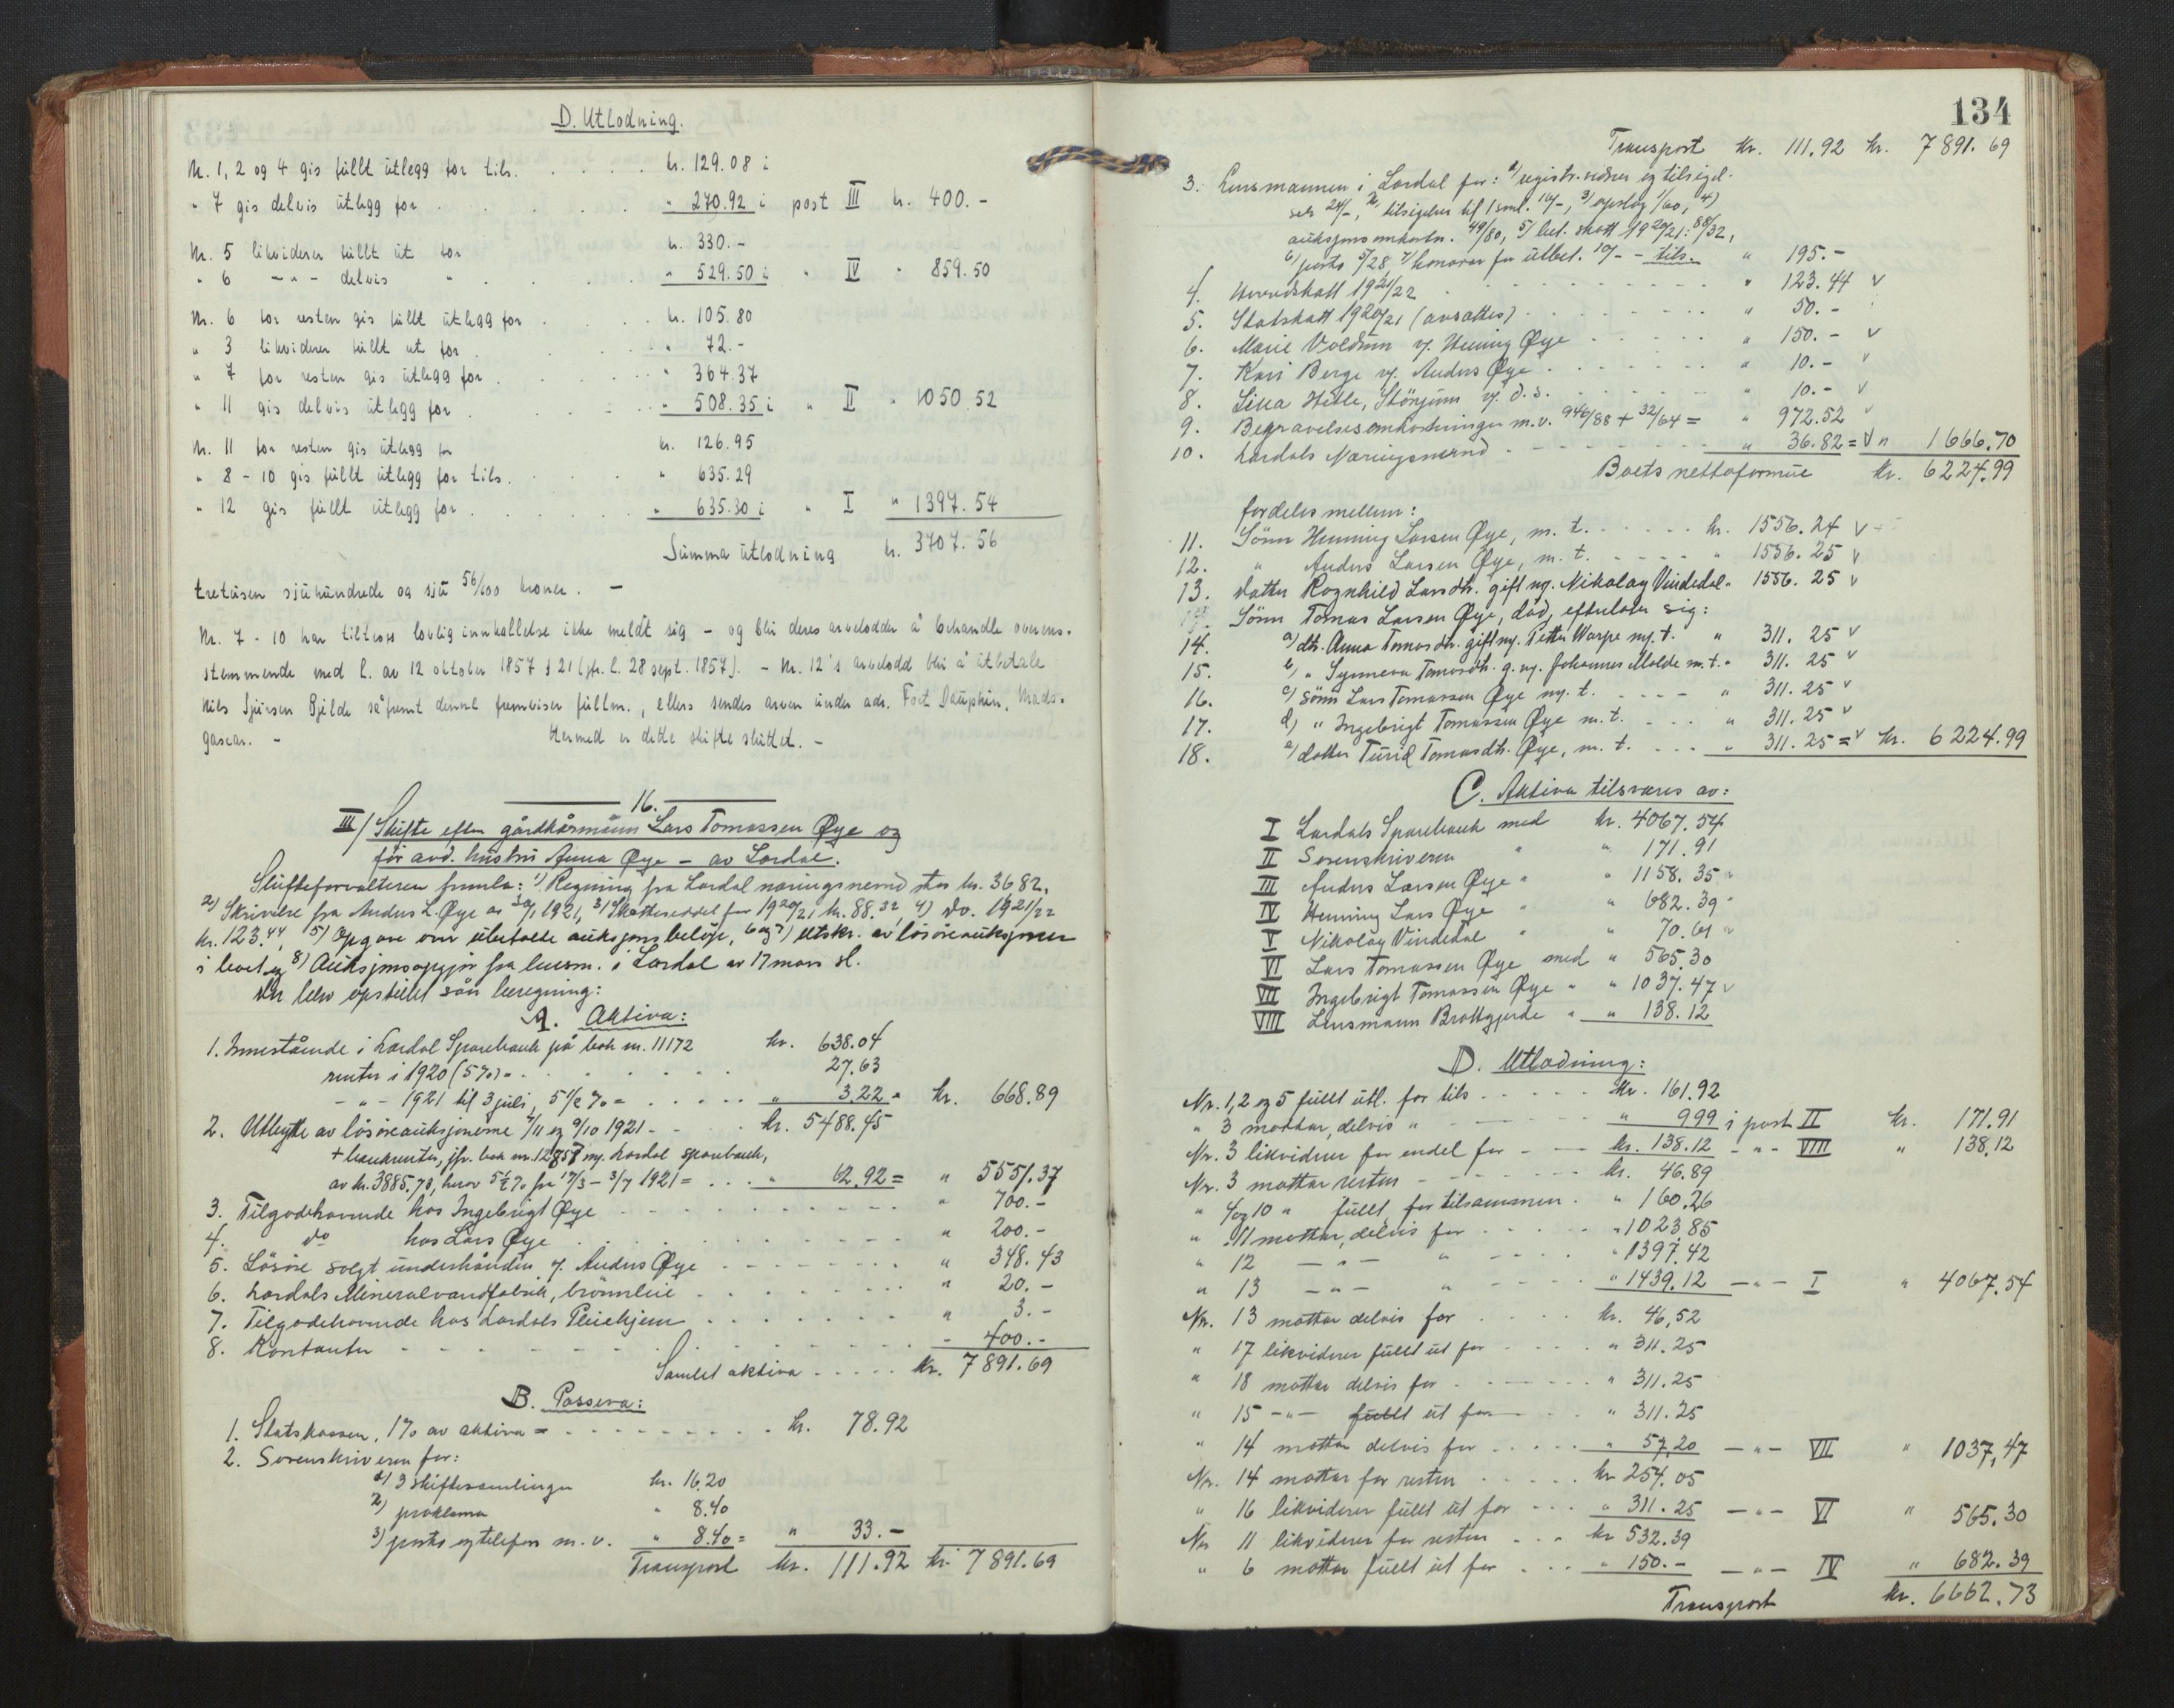 D. Utlodning.
Nr. 1, 2 og 4 gis fullt utlegg for tils. . . . . kr. 129.08 i
" 7 gis delvis utlegg for . . . . . " 270.92 i post III kr. 400.-
Nr. 5 likviderer fullt ut for kr. 330.-
" 6 -"- delvis " . . . . " 529.50 i " IV " 859.50
Nr. 6 for resten gis fullt utlegg for . . . kr. 105.80
" 3 likviderer fullt ut for . . . . " 72.-
" 7 for resten gis utlegg for . . . . " 364.37
" 11 gis delvis utlegg for . . . . " 508.35 i " II " 1050.52
Nr. 11 for resten gis utlegg for kr. 126.95
" 8 - 10 gis fullt utlegg for tils. . . . " 635.29
" 12 gis fullt utlegg for . . . . . " 635.30 i " I " 1397.54
Summa utlodning kr. 3707.56
tretusen sjuhundrede og sju 56/100 kroner. -
Nr. 7 - 10 har tiltross lovlig innkallelse ikke meldt sig - og blir deres arvelodder å behandle overens-
stemmende med l. av 12 oktober 1857 § 21 (jfr. l. 28 sept. 1857). - Nr. 12's arvelodd blir å utbetale
Nils Sjursen Bjelde såfremt denne fremviser fullm., ellers sendes arven under adr. Fort Dauphin, Mada-
gascar. - Hermed er dette skifte sluttet. -
16.
III/ Skifte efter gårdkårmann Lars Tomassen Øye og
før avd. hustru Anna Øye - av Lærdal.
Skifteforvalteren fremla: 1) Regning fra Lærdal næringsnevnd stor kr. 36.82,
2) Skrivelse fra Anders L. Øye av 30/1 1921, 3) Skatteseddel for 1920/21 kr. 88.32, 4) Do. 1921/22
kr. 123.44, 5) Opgave over utbetalte auksjonsbeløp, 6 og 7) Utskr. av løsøreauksjoner
i boet og 8) Auksjonsopgjør fra lensm. i Lærdal av 17 mars sl.
Der blev opstillet sån beregning:
A. Aktiva:
1. Innestående i Lærdal Sparebank på bok nr. 11172 kr. 638.04
renter i 1920 (5%) = . . . . . 27.63
-"- 1921 til 3 juli, 5 1/2 % = . . . . . " 3.22 = kr. 668.89
2. Utbytte av løsøreauksjonerne 7/11 og 9/10 1921 - - . kr. 5488.45
+ bankrenter, jfr. bok nr. 12857 og Lærdal sparebank,
av kr. 3885.78, herav 5 1/2 % fra 17/3 - 3/7 1921 = . . . " 62.92 = " 5551.37
3. Tilgodehavende hos Ingebrigt Øye . . . . " 700.-
4. do hos Lars Øye . . . . " 200.-
5. Løsøre solgt underhånden t. Anders Øye . . . . " 348.43
6. Lærdals Mineralvandfabrik, brønnleie . . . . " 20.-
7. Tilgodehavende hos Lærdals Pleiehjem . . . . " 3.-
8. Kontanter . . . . - 400.-
Samlet aktiva . . . . . kr. 7891.69
B. Passiva:
1. Statskassen, 1% av aktiva = . . . . . kr. 78.92
2. Sorenskriveren for:
1) 3 skiftesamlinger kr. 16.20
2) proklama " 8.40
3) porto og telefon m. v. " 8.40 = " 33.-
Transport kr. 111.92 kr. 7891.69
134
Transport kr. 111.92 kr. 7891.69
3. Lensmannen i Lærdal for: 1) registr. og tilsigel-
ser 24/-, 2) tilsigelser til 1 saml. 16/-, 3) opslag 1/60, 4)
auksjonsomkostn. 49/80, 5) bet. skatt 1920/21: 88/32,
6) porto 5/28, 7) honorar for utbet. 10/- - tils. " 195.-
4. Herredskatt 1921/22 . . . . " 123.44 v
5. Statskatt 1920/21 (avsattes) . . . . " 50.-
6. Marie Voldum v. Henning Øye . . . . " 150.- v
7. Kari Berge v. Anders Øye . . . . " 10.- v
8. Lina Hetle, Stönjum v. d. s. . . . . " 10.- v
9. Begravelsesomkostninger m.v. 946/88 + 32/64 = " 972.52 v
10. Lærdals Næringsnevnd . . . . " 36.82 = v " 1666.70
Boets nettoformue kr. 6224.99
fordeles mellem:
11. Sønn Henning Larsen Øye, m. t. . . . . kr. 1556.24 v
12. " Anders Larsen Øye, m. t. . . . . " 1556.25 v
13. datter Ragnhild Larsdtr. gift m. Nikolay Vindedal " 1556.25 v
Sønn Tomas Larsen Øye, død, efterlater sig:
14. a) dtr. Anna Tomasdtr. gift m. Petter Warpe m. t. " 311.25 v
15. b) " Synneva Tomasdtr. g. m. Johannes Molde m. t. " 311.25 v
16. c) sønn Lars Tomassen Øye m. t. . . . " 311.25 v
17. d) " Ingebrigt Tomassen Øye m. t. . . . " 311.25 v
18. e) datter Turid Tomasdtr. Øye, m. t. . . . " 311.25 = v kr. 6224.99
C. Aktiva tilsvares av:
I Lærdals Sparebank med kr. 4067.54
II Sorenskriveren " " 171.91
III Anders Larsen Øye " " 1158.35
IV Henning Lars Øye " " 682.39
V Nikolay Vindedal " " 70.61
VI Lars Tomassen Øye med " 565.30
VII Ingebrigt Tomassen Øye " " 1037.47 v
VIII Lensmann Brattgjerde " " 138.12
D. Utlodning:
Nr. 1, 2 og 5 fullt utl. for tils . . . . kr. 161.92
" 3 mottar, delvis " . . . . " 9.99 i post II kr. 171.91
Nr. 3 likviderer for endel for - - kr. 138.12 -"- VIII " 138.12
Nr. 3 mottar resten . . . . kr. 46.89
" 4 og 10 " fullt for tilsammen . " 160.26
" 11 mottar, delvis for . . . . " 1023.85
" 12 -"- " . . . . " 1397.42
" 13 -"- " . . . . " 1439.12 -"- I " 4067.54
Nr. 13 mottar delvis for . . . . kr. 46.52
" 17 likviderer fullt ut for . . . . " 311.25
" 18 mottar delvis for . . . . " 311.25
" 15 -"- fullt ut for . . . " 311.25
" 14 mottar delvis for . . . . " 57.20 -"- VII " 1037.47
Nr. 14 mottar for resten . . . . kr 254.05
" 16 likviderer fullt ut for . . . " 311.25 -"- VI " 565.30
Nr 11 likviderer for resten . . . kr 532.39
" 6 mottar fullt ut for . . . " 150.- -"- IV " 682.39
Transport kr. 6662.73